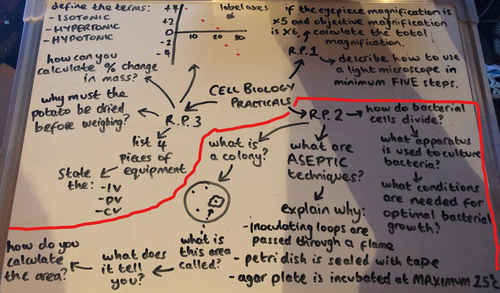 define the terms:
- ISOTONIC
- HYPERTONIC
- HYPOTONIC
label axes
+4
+2
0
-2
-4
10 20 30
if the eyepiece magnification is
x5 and objective magnification
is x6, calculate the total
magnification.
R.P.1
describe how to use
a light microscope in
minimum FIVE steps.
how can you
calculate % change
in mass?
why must the
potato be dried
before weighing?
CELL BIOLOGY
PRACTICALS
R.P.3
list 4
pieces of
equipment
State
the:
-IV
-DV
-CV
R.P.2
how do bacterial
cells divide?
what apparatus
is used to culture
bacteria?
what conditions
are needed for
optimal bacterial
growth?
what is
a colony?
what are
ASEPTIC
techniques?
explain why:
- inoculating loops are
passed through a flame
- petri dish is sealed with tape
- agar plate is incubated at MAXIMUM 25°C
what is
this area
called?
what does
it tell
you?
how do you
calculate
the area?